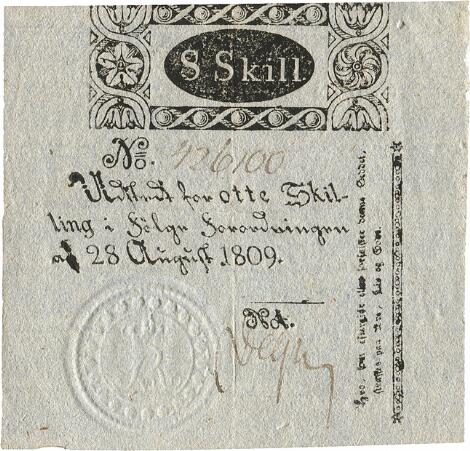 8 Skill
No. 426100
Udstedt for otte Skil-
ling i Fölge Forordningen
af 28 August 1809.
Not.
Hvo, der eftergiør eller forfalsker denne Seddel,
straffes paa Ære, Liv og Gods.